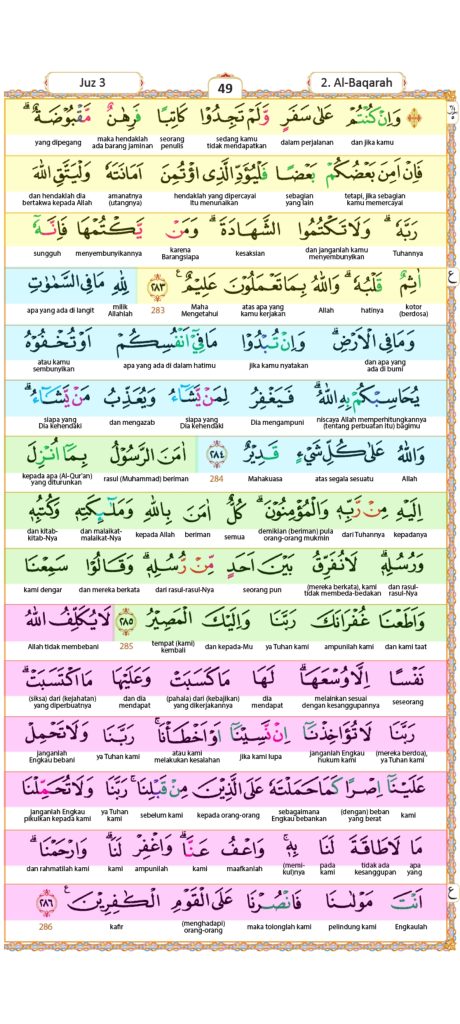 Juz 3
49
2. Al-Baqarah
وَاِنْ كُنْتُمْ عَلٰى سَفَرٍ وَّلَمْ تَجِدُوْا كَاتِبًا فَرِهٰنٌ مَّقْبُوْضَةٌ ۗ
dan jika kamu dalam perjalanan sedang kamu tidak mendapatkan seorang penulis maka hendaklah ada barang jaminan yang dipegang
فَاِنْ اَمِنَ بَعْضُكُمْ بَعْضًا فَلْيُؤَدِّ الَّذِى اؤْتُمِنَ اَمَانَتَهٗ وَلْيَتَّقِ اللّٰهَ
tetapi, jika sebagian kamu memercayai sebagian yang lain hendaklah yang dipercayai itu menunaikan amanatnya (utangnya) dan hendaklah dia bertakwa kepada Allah
رَبَّهٗ ۗ وَلَا تَكْتُمُوا الشَّهَادَةَ ۗ وَمَنْ يَّكْتُمْهَا فَاِنَّهٗٓ
Tuhannya dan janganlah kamu menyembunyikan kesaksian karena Barangsiapa menyembunyikannya sungguh
اٰثِمٌ قَلْبُهٗ ۗ وَاللّٰهُ بِمَا تَعْمَلُوْنَ عَلِيْمٌ ࣖ ٢٨٣ لِلّٰهِ مَا فِى السَّمٰوٰتِ
kotor (berdosa) hatinya Allah atas apa yang kamu kerjakan Maha Mengetahui 283 milik Allahlah apa yang ada di langit
وَمَا فِى الْاَرْضِ ۗ وَاِنْ تُبْدُوْا مَا فِيْٓ اَنْفُسِكُمْ اَوْ تُخْفُوْهُ
dan apa yang ada di bumi jika kamu nyatakan apa yang ada di dalam hatimu atau kamu sembunyikan
يُحَاسِبْكُمْ بِهِ اللّٰهُ ۗ فَيَغْفِرُ لِمَنْ يَّشَاۤءُ وَيُعَذِّبُ مَنْ يَّشَاۤءُ ۗ
niscaya Allah memperhitungkannya (tentang perbuatan itu) bagimu Dia mengampuni siapa yang Dia kehendaki dan mengazab siapa yang Dia kehendaki
وَاللّٰهُ عَلٰى كُلِّ شَيْءٍ قَدِيْرٌ ٢٨٤ اٰمَنَ الرَّسُوْلُ بِمَآ اُنْزِلَ
Allah atas segala sesuatu Mahakuasa 284 rasul (Muhammad) beriman kepada apa (Al-Qur'an) yang diturunkan
اِلَيْهِ مِنْ رَّبِّهٖ وَالْمُؤْمِنُوْنَ ۗ كُلٌّ اٰمَنَ بِاللّٰهِ وَمَلٰۤىِٕكَتِهٖ وَكُتُبِهٖ
kepadanya dari Tuhannya demikian (beriman) pula orang-orang mukmin semua beriman kepada Allah dan malaikat-malaikat-Nya dan kitab-kitab-Nya
وَرُسُلِهٖ ۗ لَا نُفَرِّقُ بَيْنَ اَحَدٍ مِّنْ رُّسُلِهٖ ۗ وَقَالُوْا سَمِعْنَا
dan rasul-rasul-Nya (mereka berkata), kami tidak membeda-bedakan seorang pun dari rasul-rasul-Nya dan mereka berkata kami dengar
وَاَطَعْنَا غُفْرَانَكَ رَبَّنَا وَاِلَيْكَ الْمَصِيْرُ ٢٨٥ لَا يُكَلِّفُ اللّٰهُ
dan kami taat ampunilah kami ya Tuhan kami dan kepada-Mu tempat (kami) kembali 285 Allah tidak membebani
نَفْسًا اِلَّا وُسْعَهَا ۗ لَهَا مَا كَسَبَتْ وَعَلَيْهَا مَا اكْتَسَبَتْ ۗ
seseorang melainkan sesuai dengan kesanggupannya dia mendapat (pahala) dari (kebajikan) yang dikerjakannya dan dia mendapat (siksa) dari (kejahatan) yang diperbuatnya
رَبَّنَا لَا تُؤَاخِذْنَآ اِنْ نَّسِيْنَآ اَوْ اَخْطَأْنَا ۚ رَبَّنَا وَلَا تَحْمِلْ
(mereka berdoa), ya Tuhan kami janganlah Engkau hukum kami jika kami lupa atau kami melakukan kesalahan ya Tuhan kami janganlah Engkau bebani
عَلَيْنَآ اِصْرًا كَمَا حَمَلْتَهٗ عَلَى الَّذِيْنَ مِنْ قَبْلِنَا ۚ رَبَّنَا وَلَا تُحَمِّلْنَا
kami (dengan) beban yang berat sebagaimana Engkau bebankan kepada orang-orang sebelum kami ya Tuhan kami janganlah Engkau pikulkan kepada kami
مَا لَا طَاقَةَ لَنَا بِهٖ ۚ وَاعْفُ عَنَّا ۗ وَاغْفِرْ لَنَا ۗ وَارْحَمْنَا ۗ
apa yang tidak ada kesanggupan pada kami (memi-kul)nya maafkanlah kami ampunilah kami dan rahmatilah kami
اَنْتَ مَوْلٰىنَا فَانْصُرْنَا عَلَى الْقَوْمِ الْكٰفِرِيْنَ ࣖ ٢٨٦
Engkaulah pelindung kami maka tolonglah kami (menghadapi) orang-orang kafir 286
ع
ع